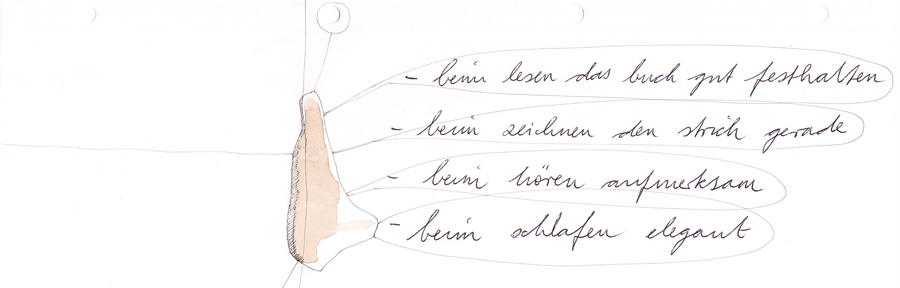 - beim lesen das buch gut festhalten
- beim zeichnen den strich gerade
- beim hören aufmerksam
- beim schlafen elegant